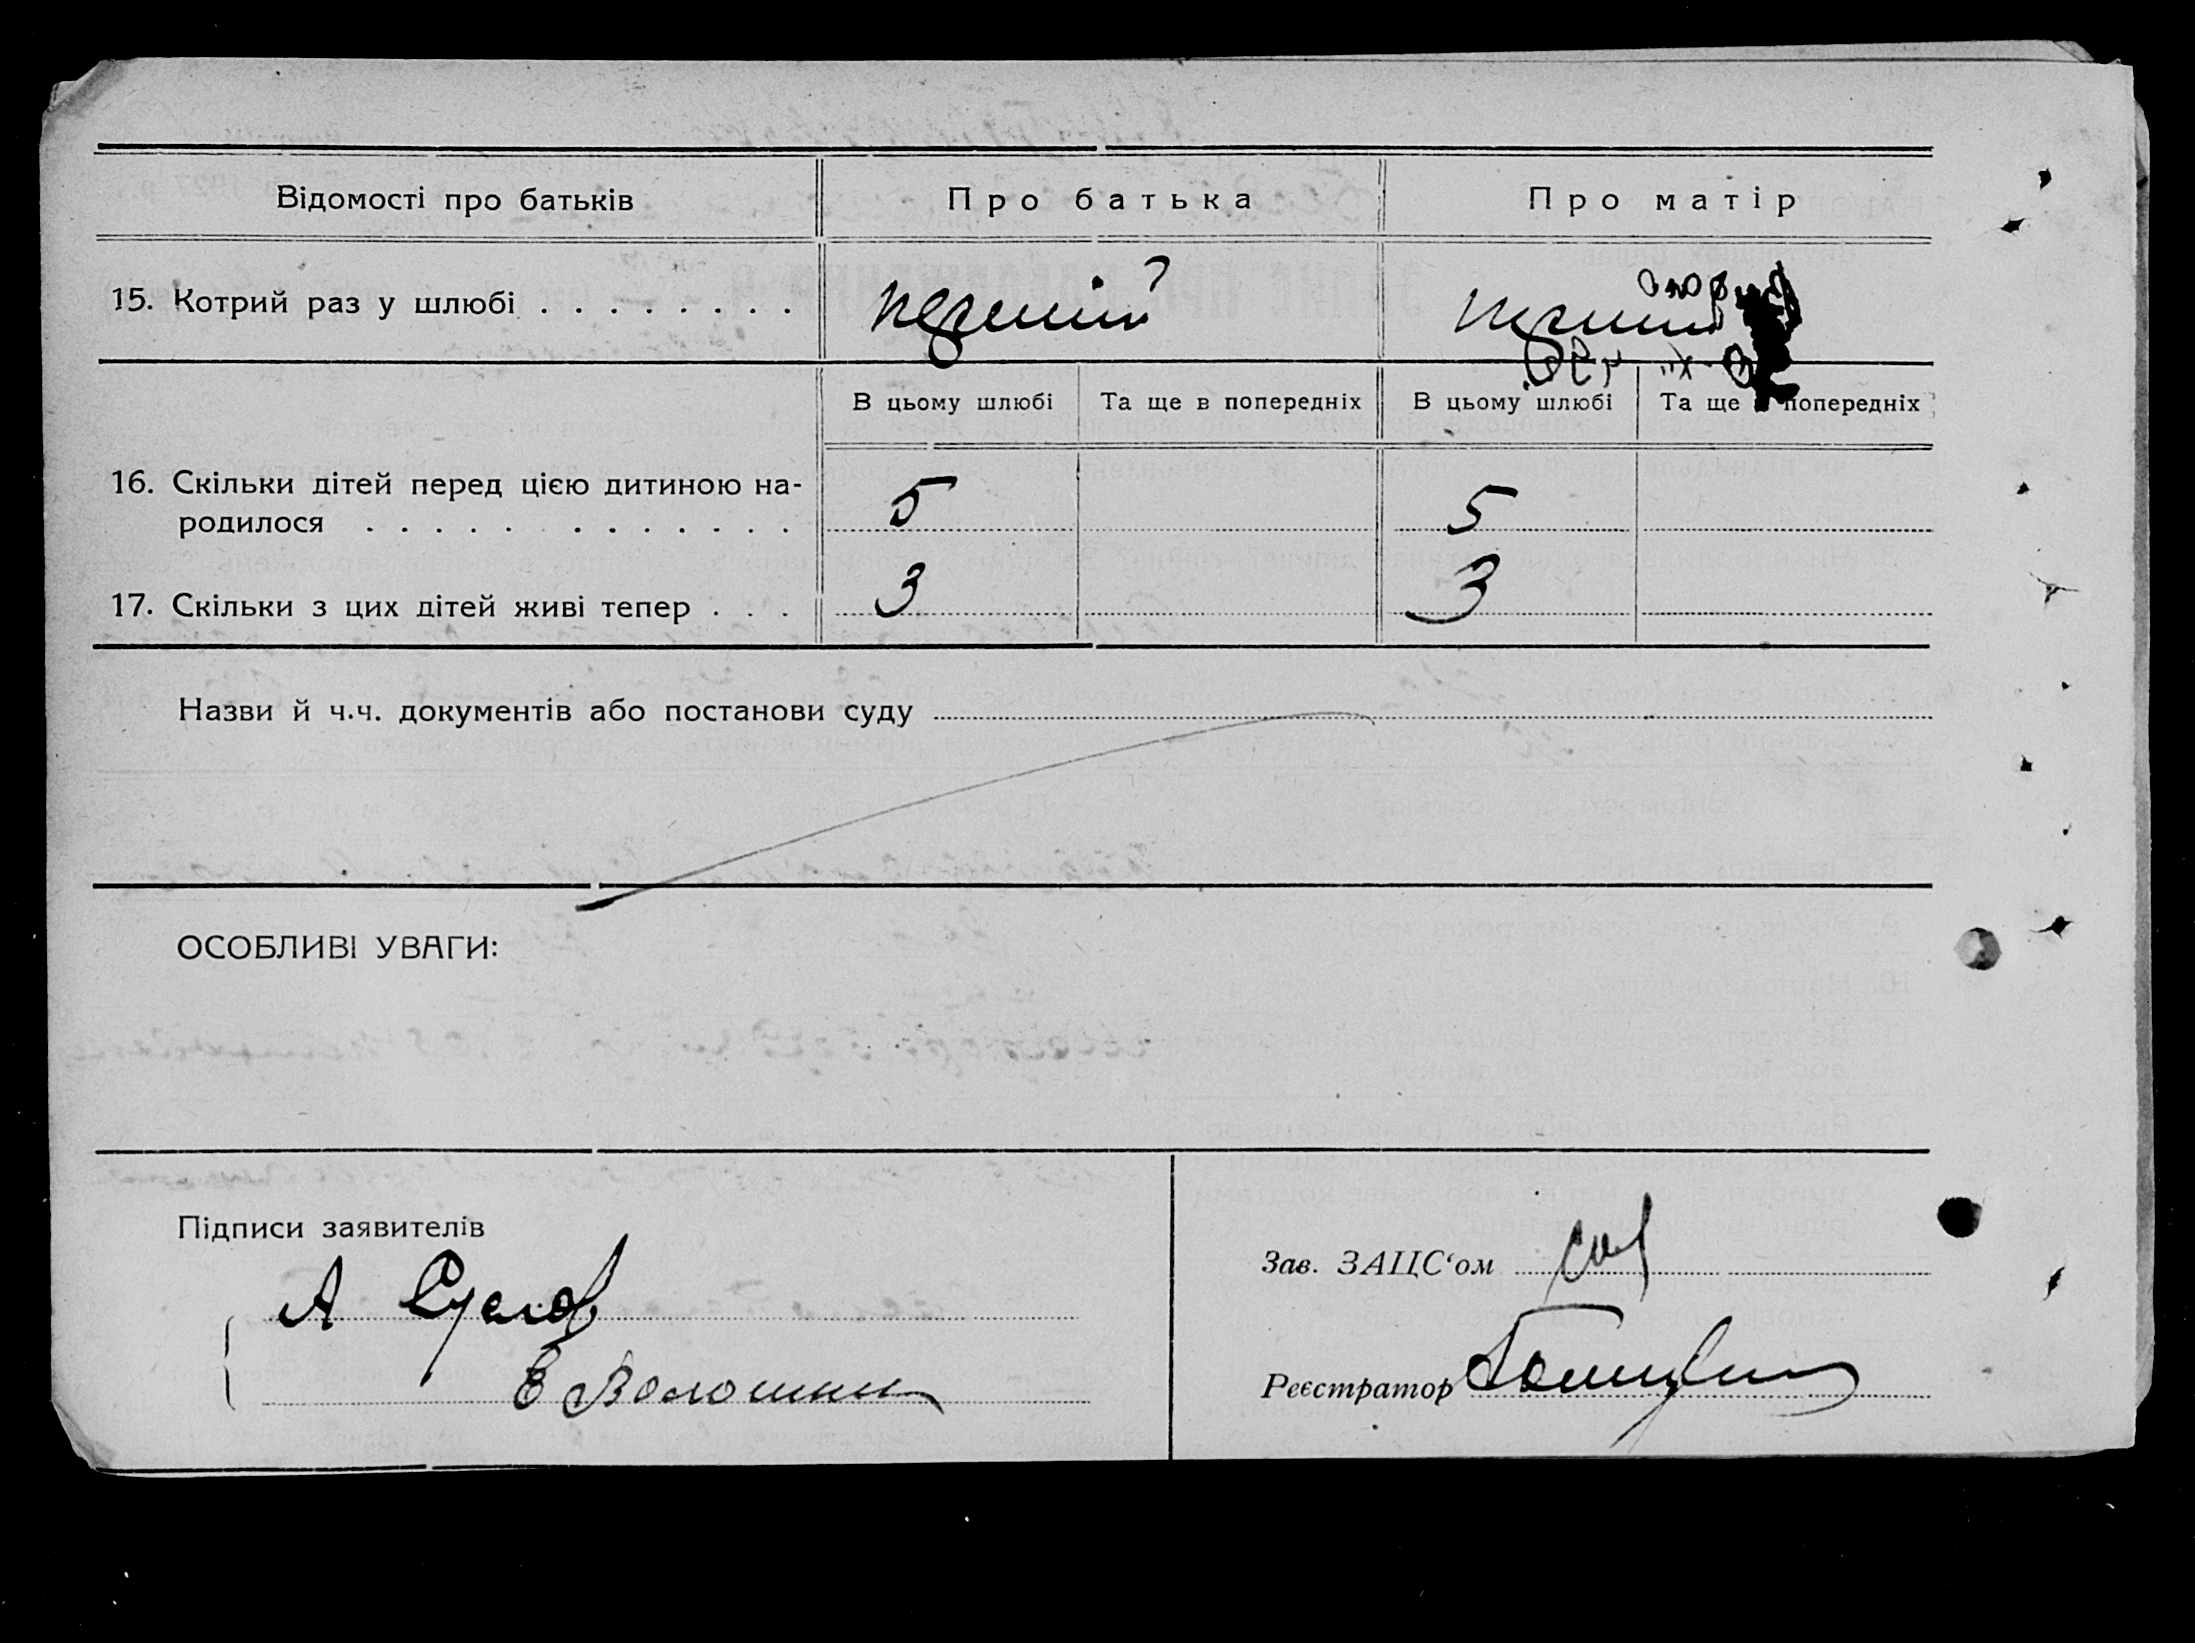 Відомості про батьків
Про батька
Про матір
15. Котрий раз у шлюбі . . . . . . . .
перший
перший
В цьому шлюбі
Та ще в попередніх
В цьому шлюбі
Та ще в попередніх
16. Скільки дітей перед цією дитиною на-
родилося . . . . . . . . . . . . .
5
5
17. Скільки з цих дітей живі тепер . . .
3
3
Назви й ч.ч. документів або постанови суду
ОСОБЛИВІ УВАГИ:
Підписи заявителів
А
Е Волошин
Зав. ЗАЦС‘ом
Реєстратор